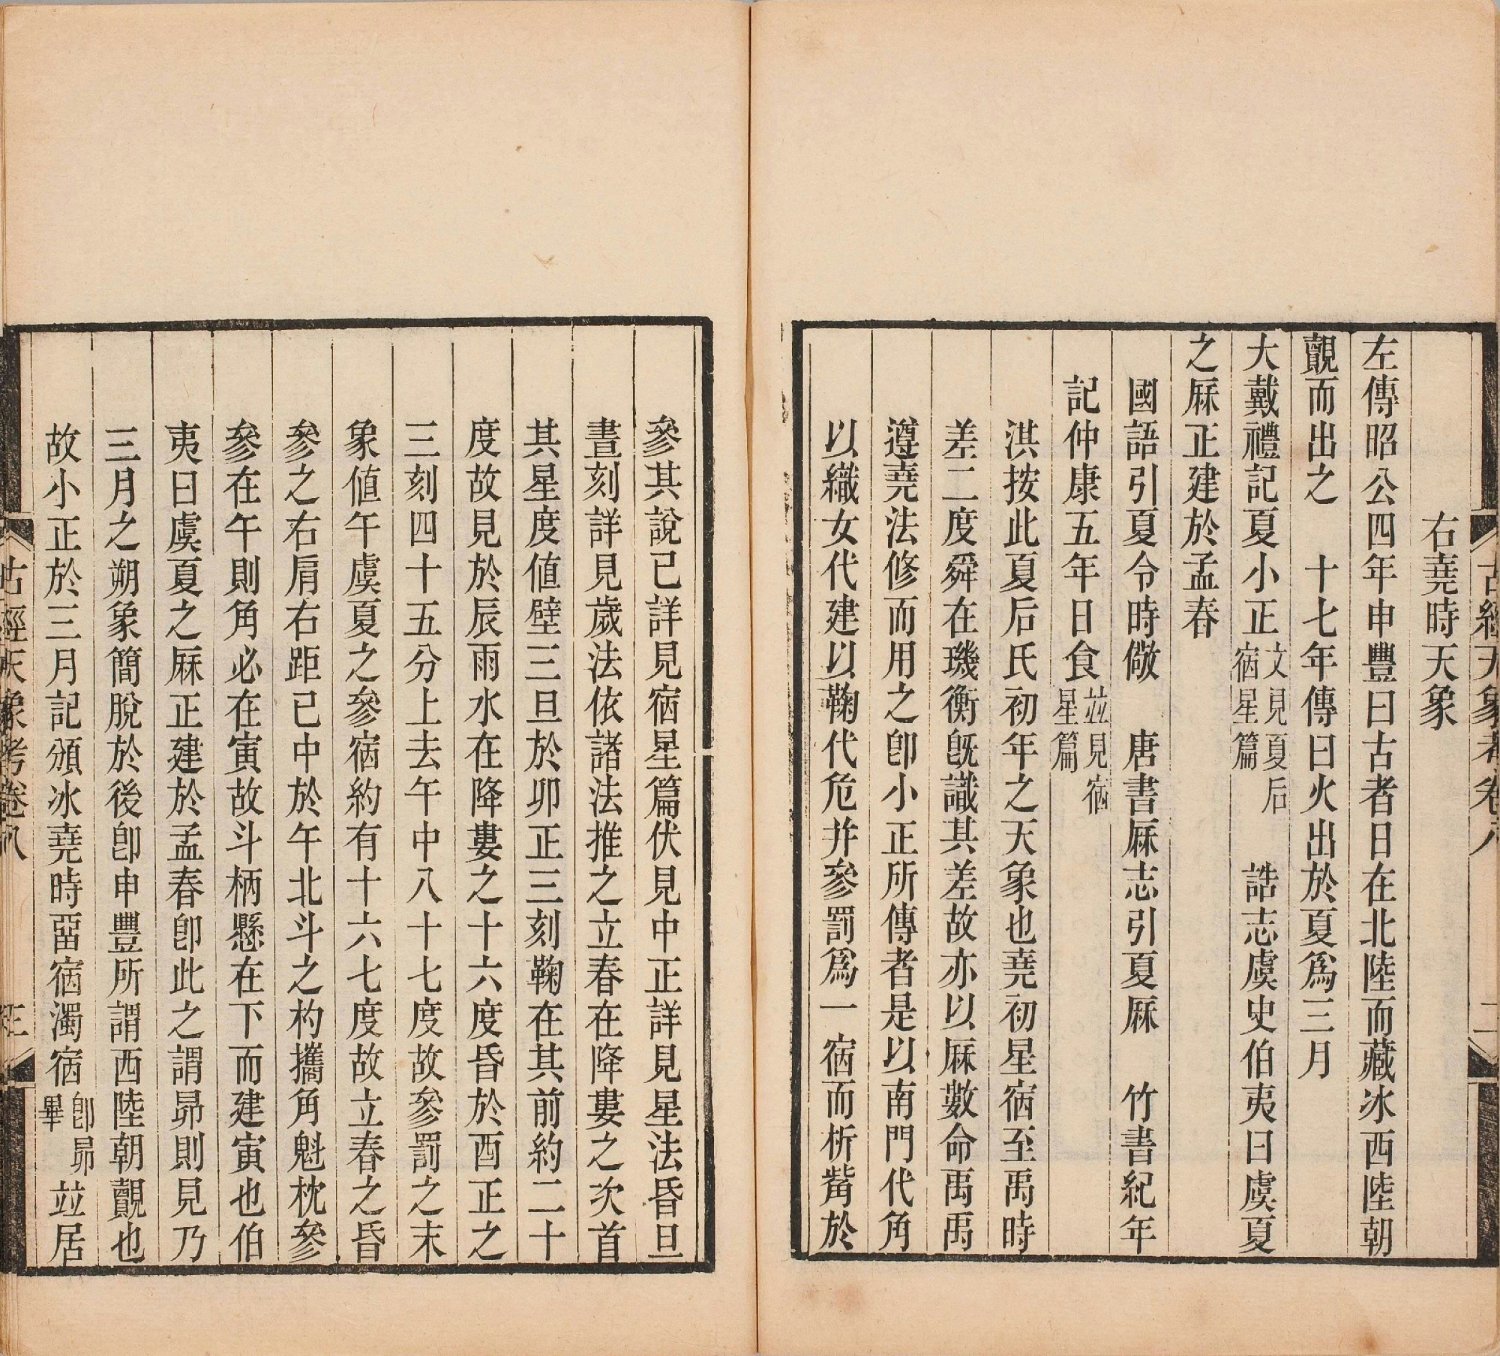 右堯時天象
左傳昭公四年申豐曰古者日在北陸而藏冰西陸朝
覿而出之　十七年傳曰火出於夏爲三月
大戴禮記夏小正文見夏后宿星篇　誥志虞史伯夷曰虞夏
之厤正建於孟春
國語引夏令時儆　唐書厤志引夏厤　竹書紀年
記仲康五年日食並見宿星篇
洪按此夏后氏初年之天象也堯初星宿至禹時
差二度舜在璣衡旣識其差故亦以厤數命禹禹
遵堯法修而用之卽小正所傳者是以南門代角
以織女代建以鞠代危并參罰爲一宿而析觜於
參其說已詳見宿星篇伏見中正詳見星法昏旦
晝刻詳見歲法依諸法推之立春在降婁之次首
其星度値壁三旦於卯正三刻鞠在其前約二十
度故見於辰雨水在降婁之十六度昏於酉正之
三刻四十五分上去午中八十七度故參罰之末
象値午虞夏之參宿約有十六七度故立春之昏
參之右肩右距已中於午北斗之杓攜角魁枕參
參在午則角必在寅故斗柄懸在下而建寅也伯
夷曰虞夏之厤正建於孟春卽此之謂昴則見乃
三月之朔象簡脫於後卽申豐所謂西陸朝覿也
故小正於三月記頒冰堯時畱宿濁宿卽昴畢並居
古經天象考卷八